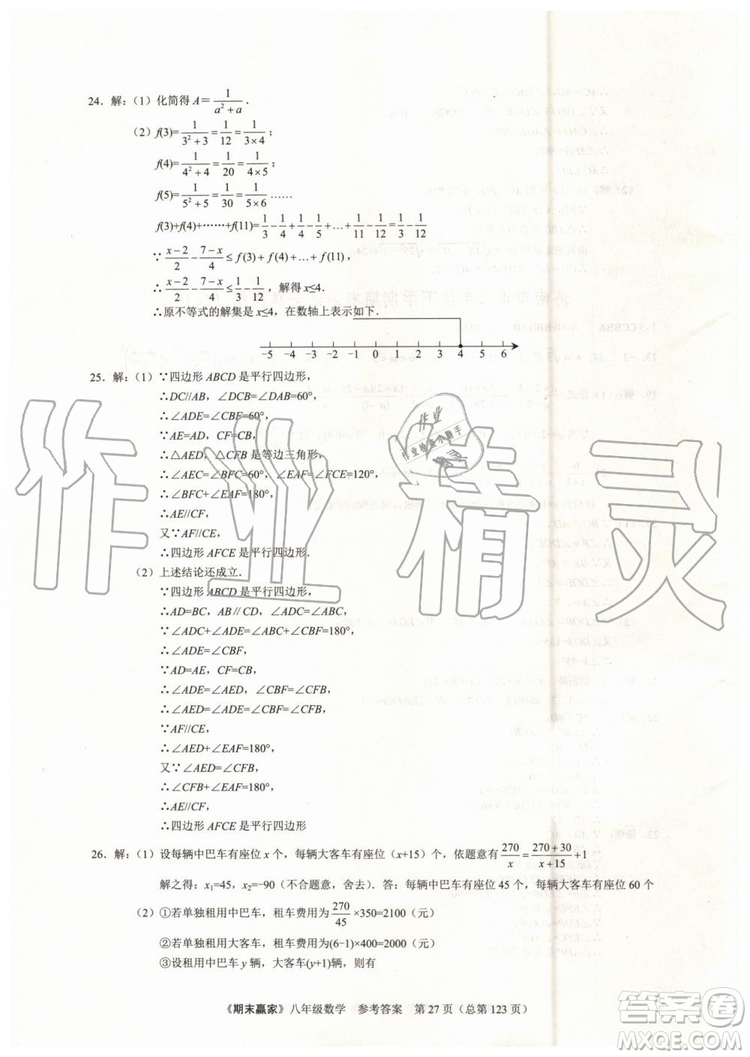 24．解：（1）化简得 A＝1/(a²＋a)．
（2）f(3)=1/(3²＋3)=1/12=1/(3×4)；
f(4)=1/(4²＋4)=1/20=1/(4×5)；
f(5)=1/(5²＋5)=1/30=1/(5×6)……
f(3)+f(4)+……+f(11)=1/3-1/4+1/4-1/5+…+1/11-1/12=1/3-1/12
∵(x−2)/2−(7−x)/4≤f(3)+f(4)+…+f(11)，
∴(x−2)/2−(7−x)/4≤1/3-1/12，解得 x≤4．
∴原不等式的解集是 x≤4，在数轴上表示如下：
−5 −4 −3 −2 −1 0 1 2 3 4 5 6
25．解：（1）∵四边形 ABCD 是平行四边形，
∴DC//AB，∠DCB=∠DAB=60°．
∴∠ADE=∠CBF=60°．
∵AE=AD，CF=CB，
∴△AED，△CFB 是等边三角形，
∴∠AEC=∠BFC=60°，∠EAF=∠FCE=120°，
∴AE//CF，
又∵AF//CE，
∴四边形 AFCE 是平行四边形．
（2）上述结论还成立．
∵四边形 ABCD 是平行四边形，
∴AD=BC，AB // CD，∠DAB=∠DCB，
∵∠ADC+∠ADE=∠ABC+∠CBF=180°，
∴∠ADE=∠CBF．
∵AD=AE，CF=CB，
∴∠ADE=∠AED，∠CBF=∠CFB，
∴∠AED=∠CFB，
∵AF//CE，
∴∠AED+∠EAF=180°，
又∵∠AED=∠CFB，
∴∠CFB+∠EAF=180°，
∴AE//CF，
∴四边形 AFCE 是平行四边形
26．解：（1）设每辆中巴车有座位 x 个，每辆大客车有座位（x+15）个，依题意有270/x=(270+30)/(x+15)+1
解之得：x₁=45，x₂=−90（不合题意，舍去）．答：每辆中巴车有座位 45 个，每辆大客车有座位 60 个
（2）①若单独租用中巴车，租车费用为270/45×350=2100（元）
②若单独租用大客车，租车费用为(6-1)×400=2000（元）
③设租用中巴车 y 辆，则有
《期末赢家》八年级数学 参考答案 第 27 页（总第 123 页）
作业精灵
作业
作业检查小助手
答案圈
MXQE.COM